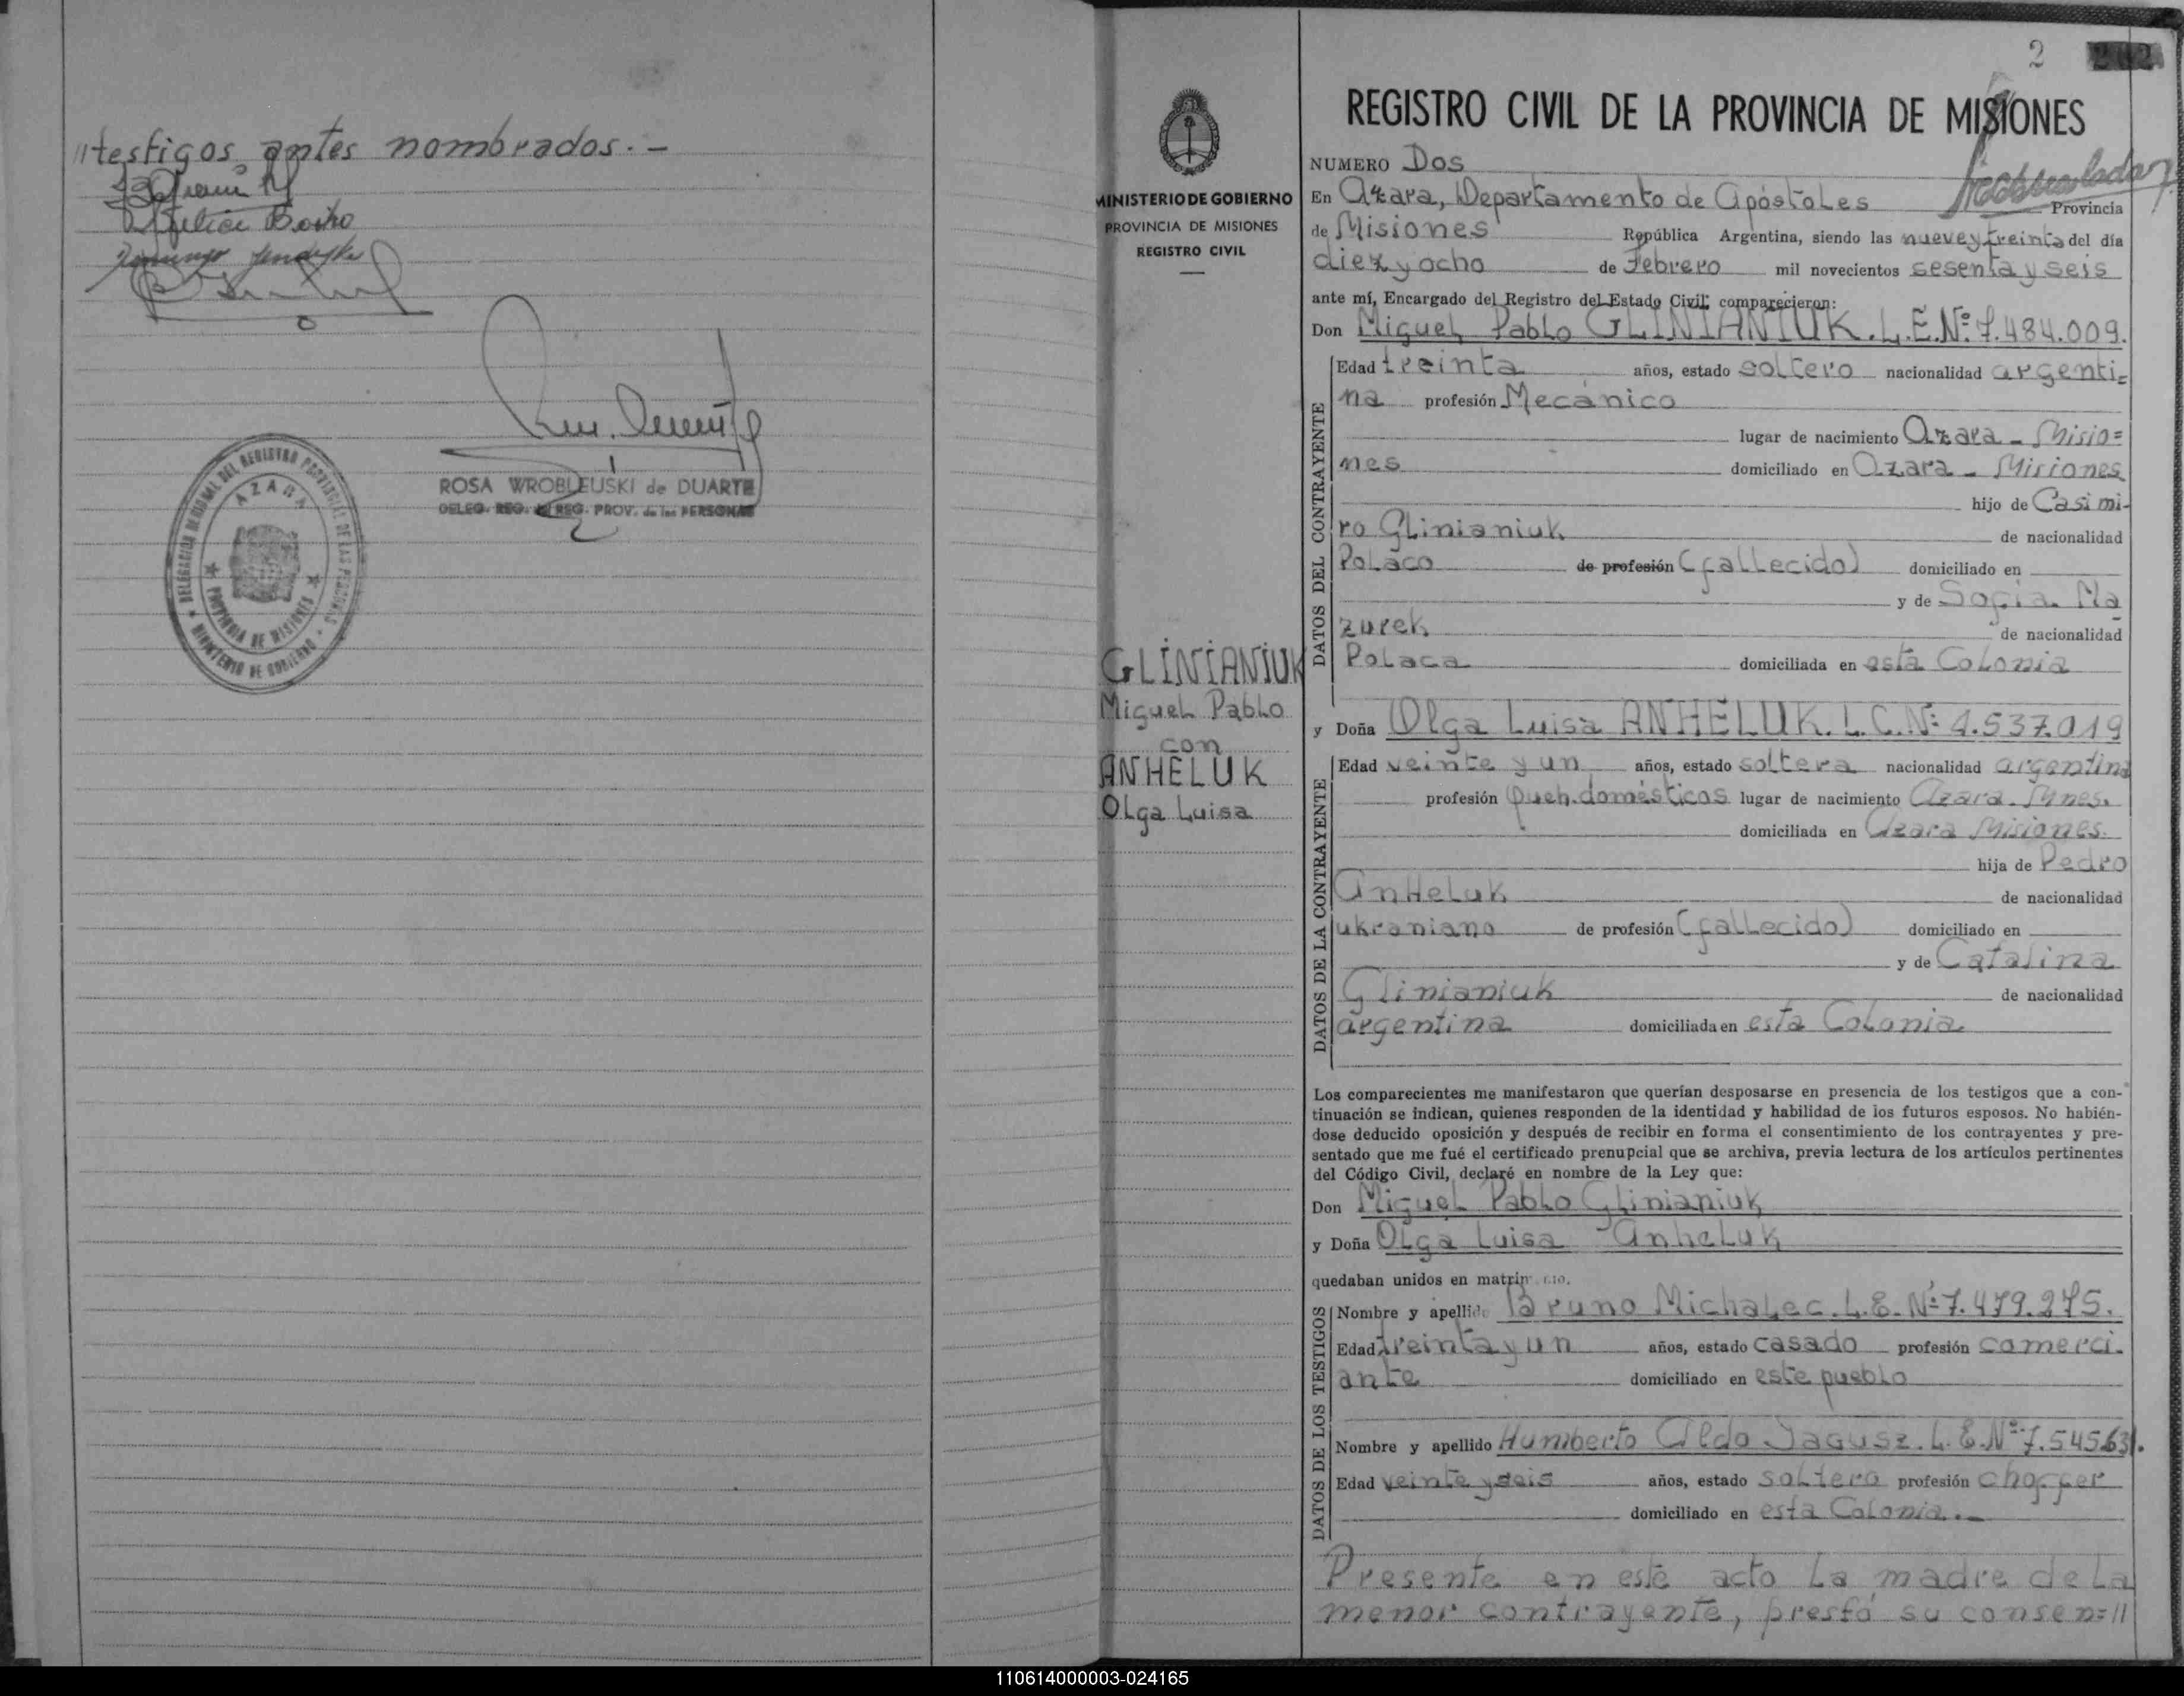 //testigos antes nombrados.-
ROSA WROBLEUSKI de DUARTE
DELEG. REG. del REG. PROV. de las PERSONAS
DELEGACION REGIONAL DEL REGISTRO PROVINCIAL DE LAS PERSONAS
AZARA
PROVINCIA DE MISIONES
MINISTERIO DE GOBIERNO
MINISTERIO DE GOBIERNO
PROVINCIA DE MISIONES
REGISTRO CIVIL
GLINIANIUK
Miguel Pablo
con
ANHELUK
Olga Luisa
2
202
REGISTRO CIVIL DE LA PROVINCIA DE MISIONES
NUMERO Dos
En Azara, Departamento de Apóstoles Provincia
de Misiones República Argentina, siendo las nueve y treinta del día
diez y ocho de Febrero mil novecientos sesenta y seis
ante mí, Encargado del Registro del Estado Civil; comparecieron:
Don Miguel Pablo GLINIANIUK. L.E.Nº: 7.484.009.
DATOS DEL CONTRAYENTE
Edad treinta años, estado soltero nacionalidad argenti=
na profesión Mecánico
lugar de nacimiento Azara - Misio=
nes domiciliado en Azara - Misiones
hijo de Casimi-
ro Glinianiuk de nacionalidad
Polaco de profesión (fallecido) domiciliado en
y de Sofia Ma
zurek de nacionalidad
Polaca domiciliada en esta Colonia
y Doña Olga Luisa ANHELUK. L.C.Nº: 4.537.019
DATOS DE LA CONTRAYENTE
Edad veinte y un años, estado soltera nacionalidad argentina
profesión Queh. domésticos lugar de nacimiento Azara. Mnes.
domiciliada en Azara Misiones.
hija de Pedro
AnHeluk de nacionalidad
ukraniano de profesión (fallecido) domiciliado en
y de Catalina
Glinianiuk de nacionalidad
argentina domiciliada en esta Colonia
Los comparecientes me manifestaron que querían desposarse en presencia de los testigos que a con-
tinuación se indican, quienes responden de la identidad y habilidad de los futuros esposos. No habién-
dose deducido oposición y después de recibir en forma el consentimiento de los contrayentes y pre-
sentado que me fué el certificado prenupcial que se archiva, previa lectura de los artículos pertinentes
del Código Civil, declaré en nombre de la Ley que:
Don Miguel Pablo Glinianiuk
y Doña Olga Luisa Anheluk
quedaban unidos en matrimonio.
DATOS DE LOS TESTIGOS
Nombre y apellido Bruno Michalec. L.E. Nº 7.479.275.
Edad treinta y un años, estado casado profesión comerci-
ante domiciliado en este pueblo
Nombre y apellido Humberto Aldo Jagusz. L.E.Nº 7.545631.
Edad veinte y seis años, estado soltero profesión choffer
domiciliado en esta Colonia.-
Presente en este acto la madre de la
menor contrayente, prestó su consen=//
110614000003-024165